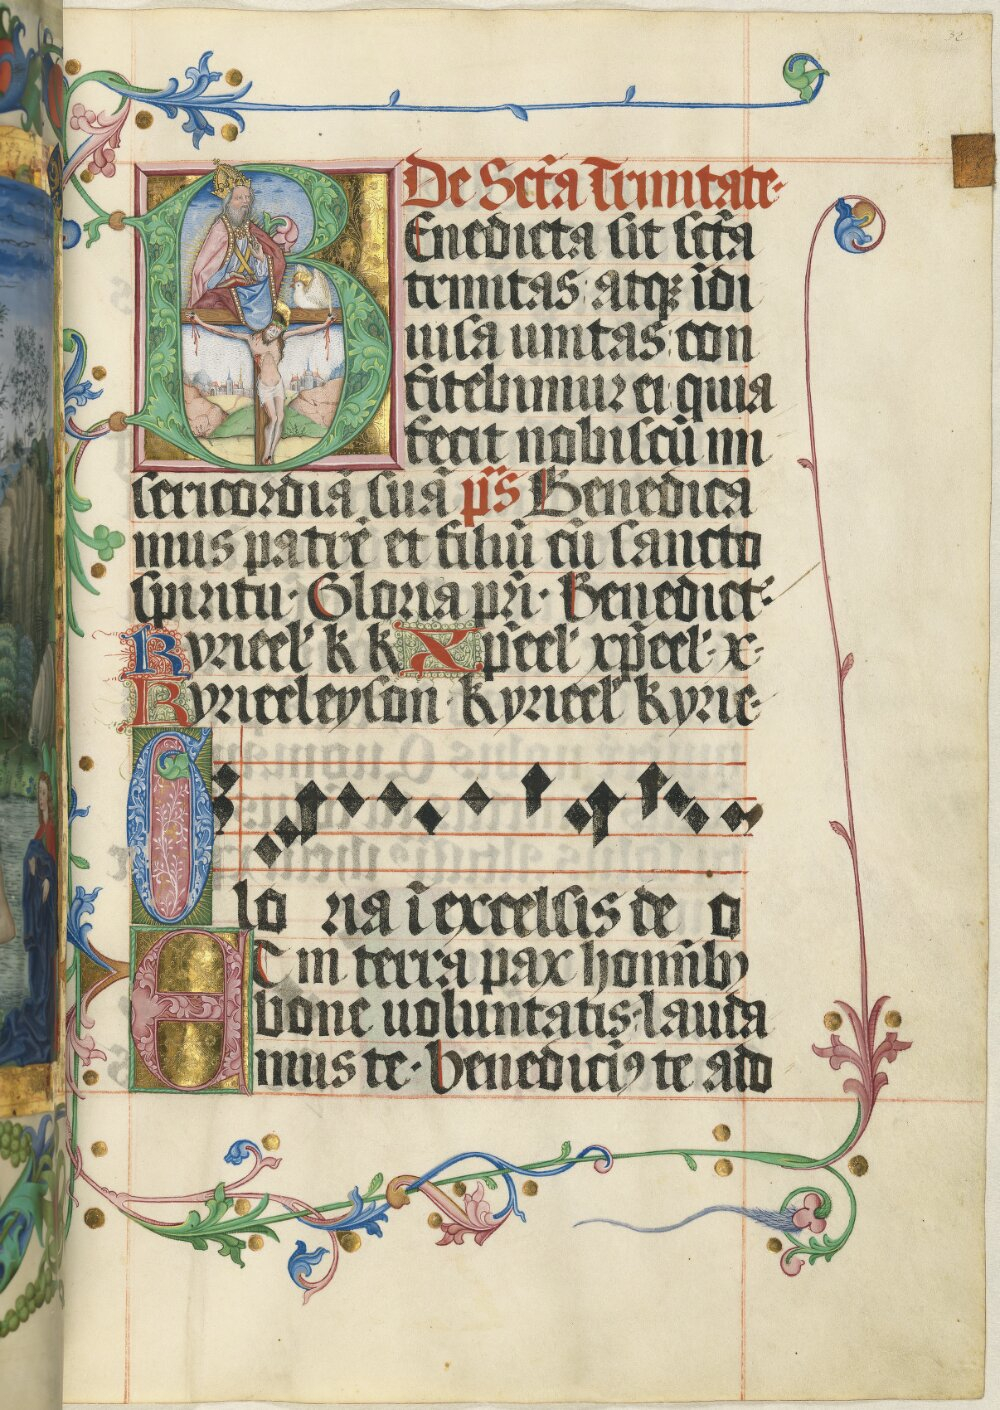 32
De Sct̄a Trinitate
Benedicta sit sct̄a
trinitas atqꝫ īdi
uisa unitas: con
fitebimur ei quia
fecit nobiscū mi
sericordiā suā p̄s Benedica
mus patrē et filiū cū sancto
spiritu. Gloria pr̄i. Benedict.
Kyrieel' k k Xp̄eel' xp̄eel' x.
Kyrieeleyson kyrieel' kyrie.
Glo ria ī excelsis de o
Et in terra pax homībꝰ
bone uoluntatis. lauda
mus te. benedicimꝰ te ado